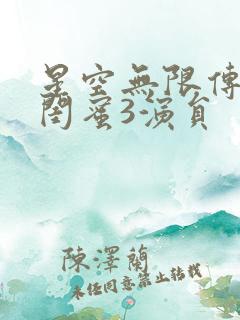 星空無限傳
閨蜜3演員
陳澤蘭
未經同意禁止轉載